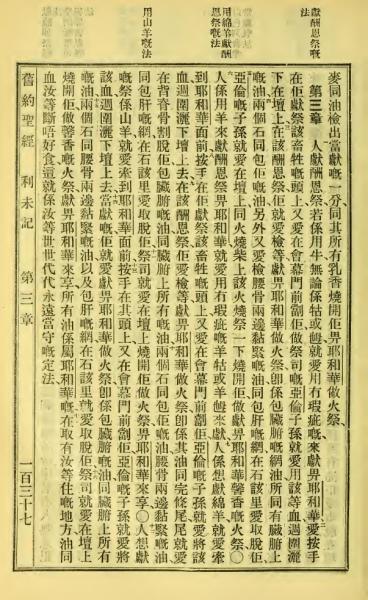 獻酬恩祭嘅法
用綿羊獻酬恩祭嘅法
用山羊嘅法
麥同油檢出當獻嘅一分、同其所有乳香燒開佢畀耶和華做火祭、
第三章 人獻酬恩祭若係用牛無論係牯或牸就愛用冇瑕疵嘅來獻畀耶和華愛按手
在佢獻祭該畜牲嘅頭上又愛在會幕門前劏佢做祭司嘅亞倫子孫就愛用該等血週圍灑
下在壇上在該酬恩祭佢就愛檢等獻畀耶和華做火祭卽係包倒臟腑嘅網油所同有臟腑上
嘅油兩個石同包佢嘅油另外又愛檢腰骨兩邊黏緊嘅油同包肝嘅網在石該里愛取脫佢
亞倫嘅子孫就愛在壇上同火燒柴上該火燒祭一下燒開佢做獻畀耶和華馨香嘅火祭〇
人係用羊來獻酬恩祭畀耶和華就愛用冇瑕疵嘅羊牯或羊牸來獻人係想獻綿羊就愛牽
到耶和華面前按手在佢獻祭該畜牲嘅頭上又愛在會幕門前劏佢亞倫嘅子孫就愛將該
血週圍灑下壇上去在該酬恩祭佢愛檢等獻畀耶和華做火祭卽係其油同完條尾尾就愛
在背脊骨割脫佢包倒臟腑嘅油同臟腑上所有嘅油兩個石同包佢嘅油腰骨兩邊黏緊嘅油
同包肝嘅網在石該里愛取脫佢祭司就愛在壇上燒開佢做火祭畀耶和華來享〇人想獻
嘅祭係山羊就愛牽到耶和華面前按手在其頭上又在會幕門前劏佢亞倫嘅子孫就愛將
該血週圍灑下壇上去當獻嘅佢就愛獻畀耶和華做火祭卽係包倒臟腑嘅油同臟腑上所有
嘅油兩個石同腰骨兩邊黏緊嘅油以及包肝嘅網在石該里就愛取脫佢祭司就愛在壇上
燒開佢做馨香嘅火祭獻畀耶和華來享所有油係屬耶和華嘅在取有汝等住嘅地方油同
血汝等斷唔好食這就係汝等世世代代永遠當守嘅定法
舊約聖經 利未記 第三章 一百三十七